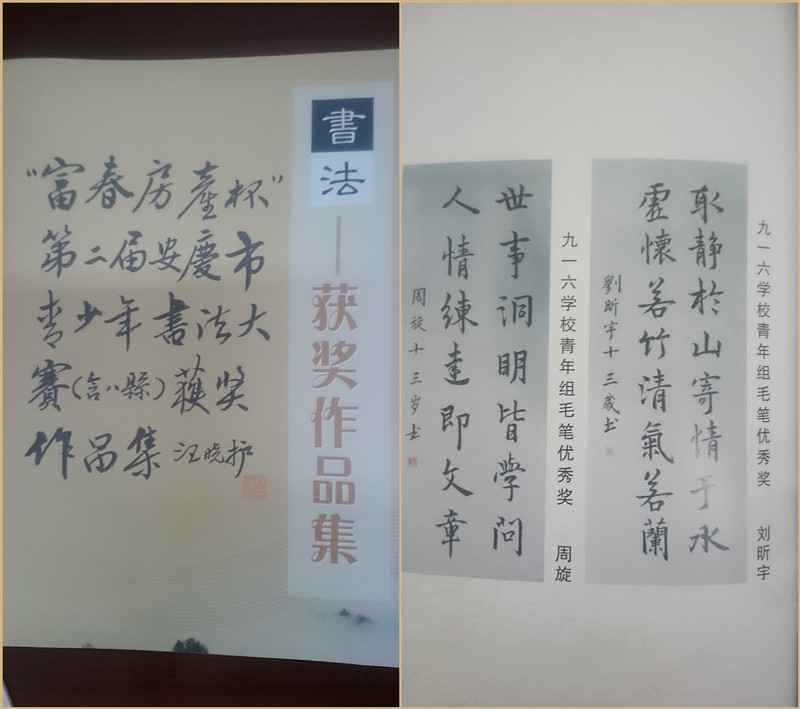 "富春房產杯"
第二届安慶市
青少年書法大
賽(含八縣)獲奖
作品集 汪晓护
書法——获奖作品集
九一六学校青年组毛笔优秀奖 刘昕宇
取静於山寄情于水
虛懷若竹清氣若蘭
劉昕宇十三歲书
九一六学校青年组毛笔优秀奖 周旋
世事洞明皆學问
人情練達即文章
周旋十三岁书